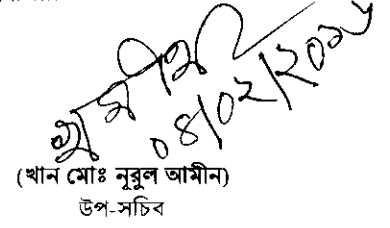 ০৪/০২/২০১৮
(খান মোঃ নূরুল আমীন)
উপ-সচিব